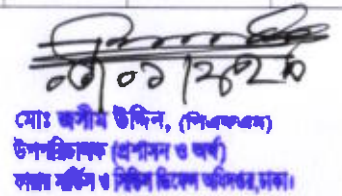 মোঃ জসীম উদ্দিন, (পিএফএম)
উপপরিচালক (প্রশাসন ও অর্থ)
ফায়ার সার্ভিস ও সিভিল ডিফেন্স অধিদপ্তর, ঢাকা।